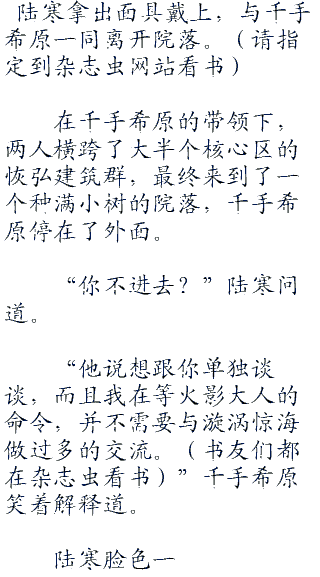 陆寒拿出面具戴上，与千手
希原一同离开院落。（请指
定到杂志虫网站看书）
在千手希原的带领下，
两人横跨了大半个核心区的
恢弘建筑群，最终来到了一
个种满小树的院落，千手希
原停在了外面。
“你不进去？”陆寒问
道。
“他说想跟你单独谈
谈，而且我在等火影大人的
命令，并不需要与漩涡惊海
做过多的交流。（书友们都
在杂志虫看书）”千手希原
笑着解释道。
陆寒脸色一